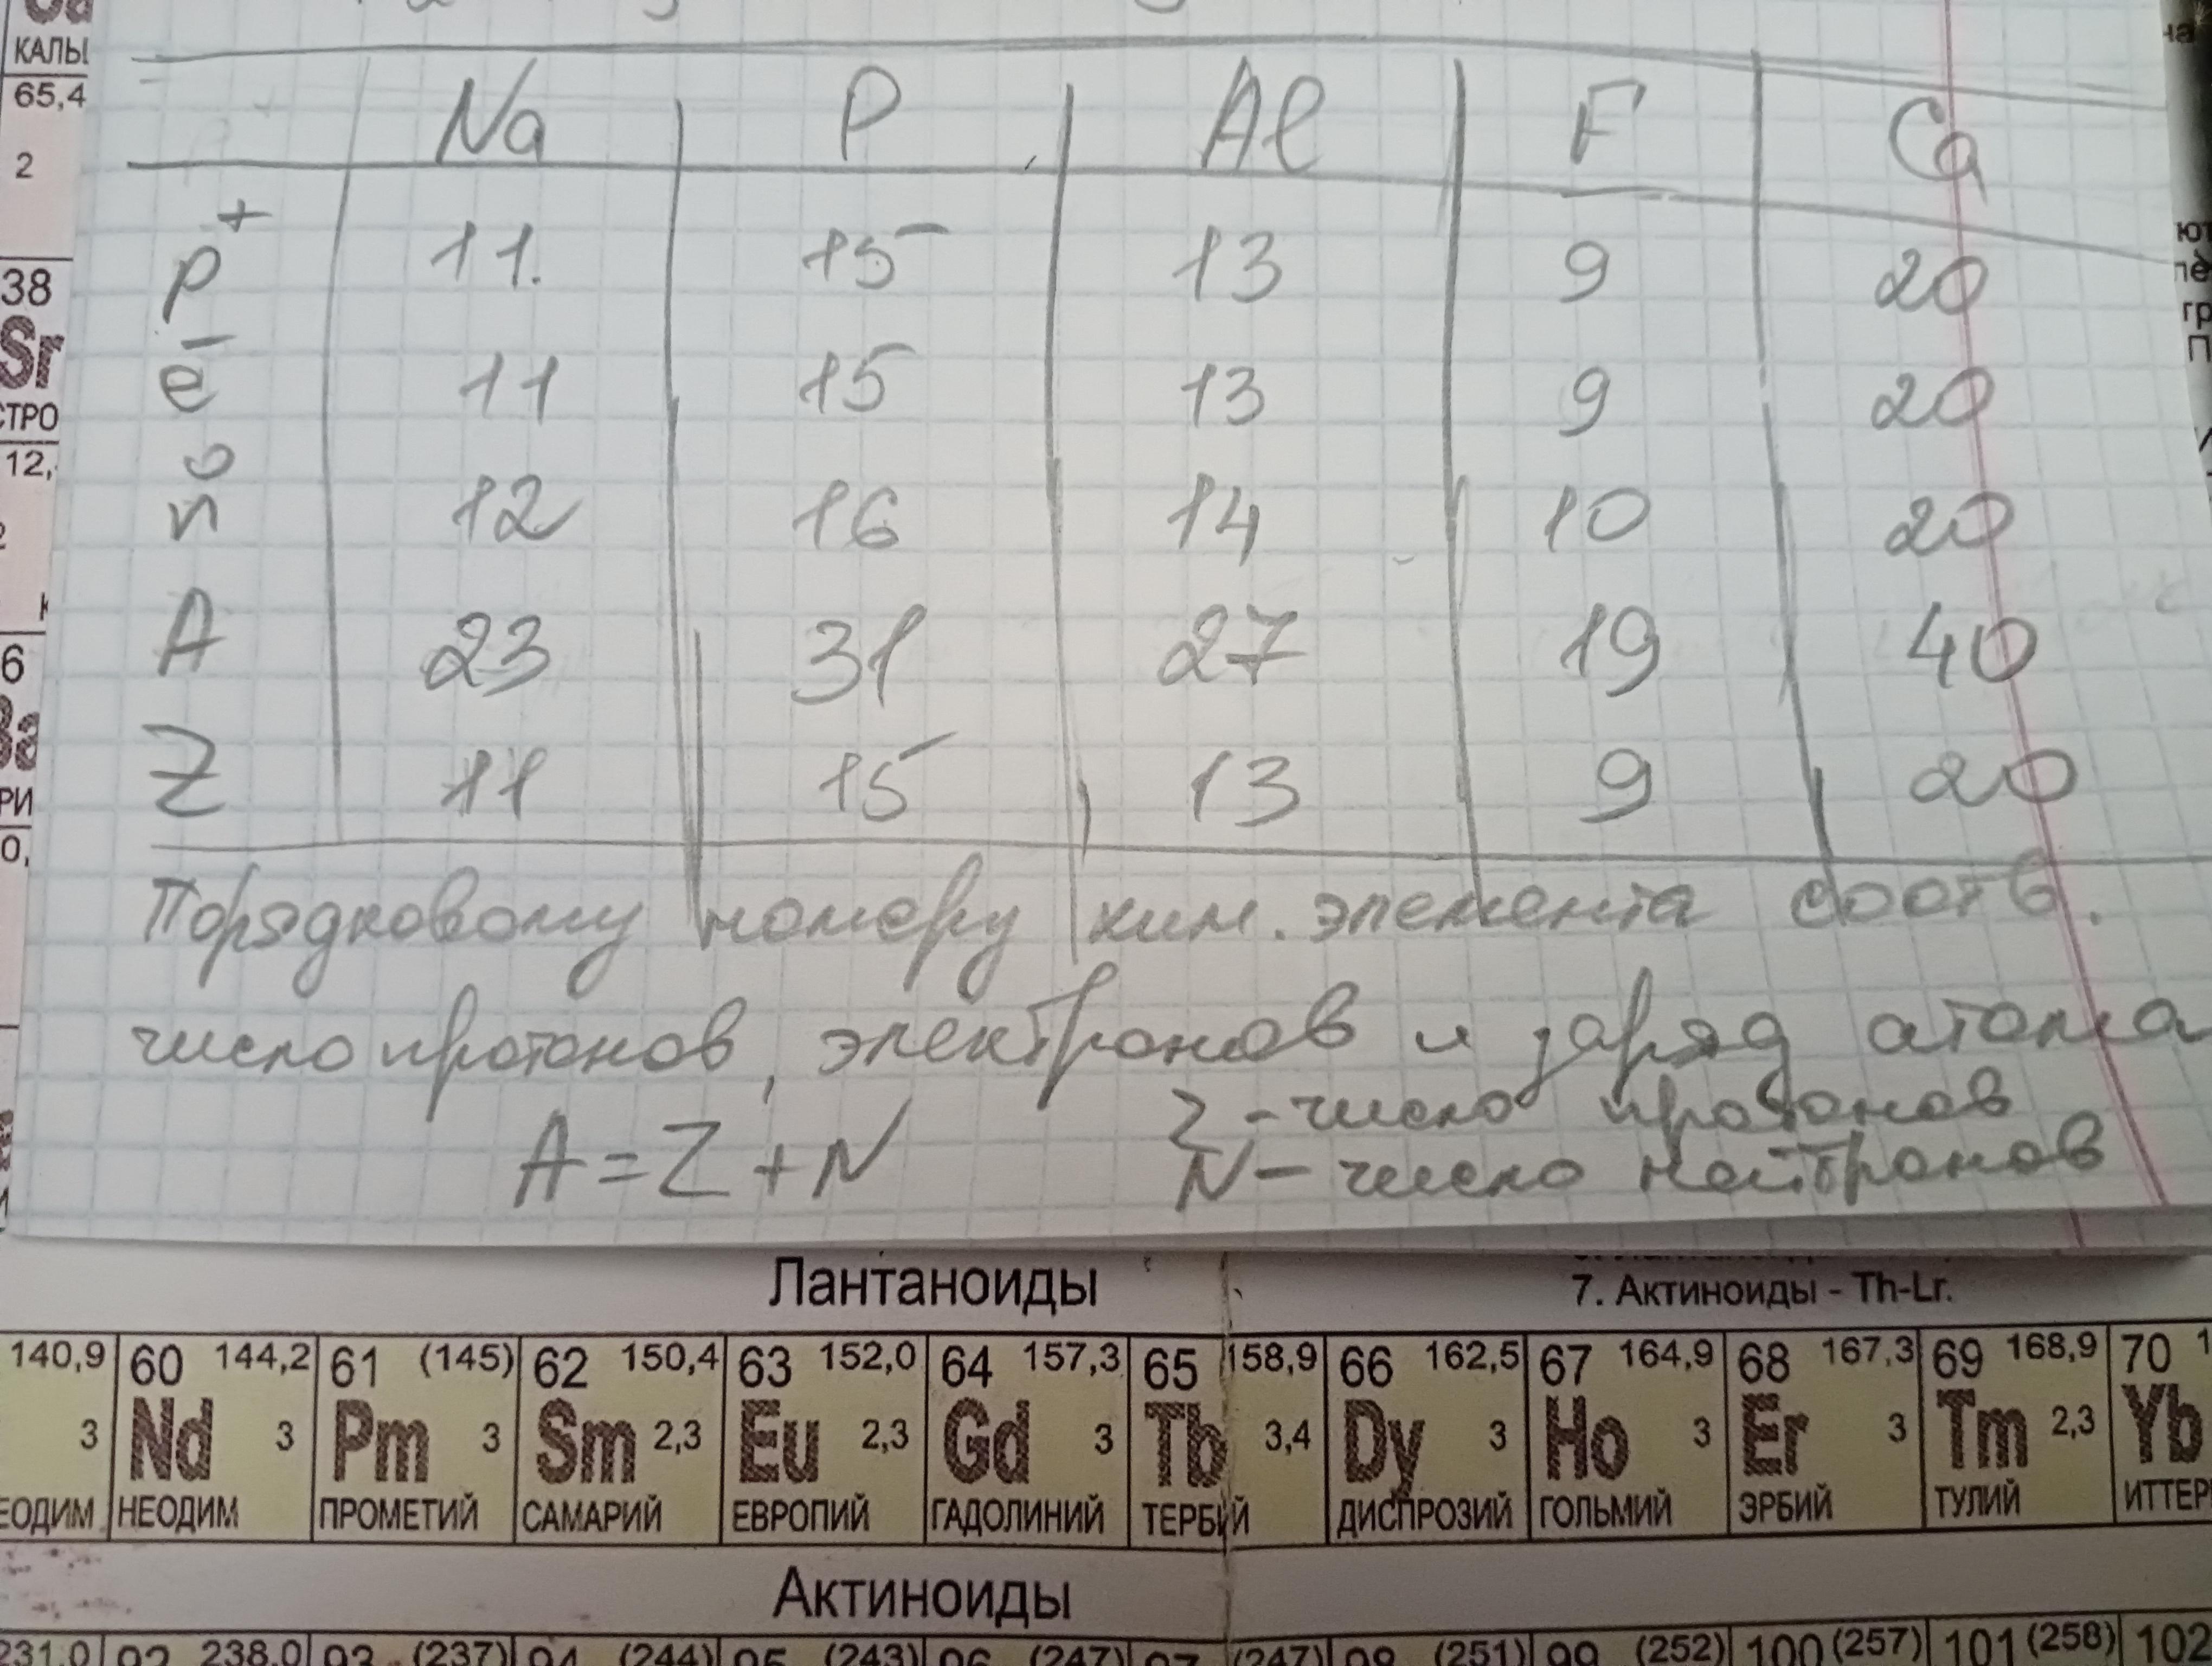 КАЛЬ
65,4
2
38
Sr
СТРО
12,
6
Ba
РИ
0,
Na P Al F Ca
p⁺ 11. 15 13 9 20
e⁻ 11 15 13 9 20
n⁰ 12 16 14 10 20
A 23 31 27 19 40
Z 11 15 13 9 20
Порядковому номеру хим. элемента соотв.
число протонов, электронов и заряд атома
A = Z + N Z - число протонов
N - число нейтронов
Лантаноиды
7. Актиноиды - Th-Lr.
140,9 60 144,2 61 (145) 62 150,4 63 152,0 64 157,3 65 158,9 66 162,5 67 164,9 68 167,3 69 168,9 70 1
3 Nd 3 Pm 3 Sm 2,3 Eu 2,3 Gd 3 Tb 3,4 Dy 3 Ho 3 Er 3 Tm 2,3 Yb
ЕОДИМ НЕОДИМ ПРОМЕТИЙ САМАРИЙ ЕВРОПИЙ ГАДОЛИНИЙ ТЕРБИЙ ДИСПРОЗИЙ ГОЛЬМИЙ ЭРБИЙ ТУЛИЙ ИТТЕР
Актиноиды
231,0 92 238,0 93 (237) 94 (244) 95 (243) 96 (247) 97 (247) 98 (251) 99 (252) 100 (257) 101 (258) 102